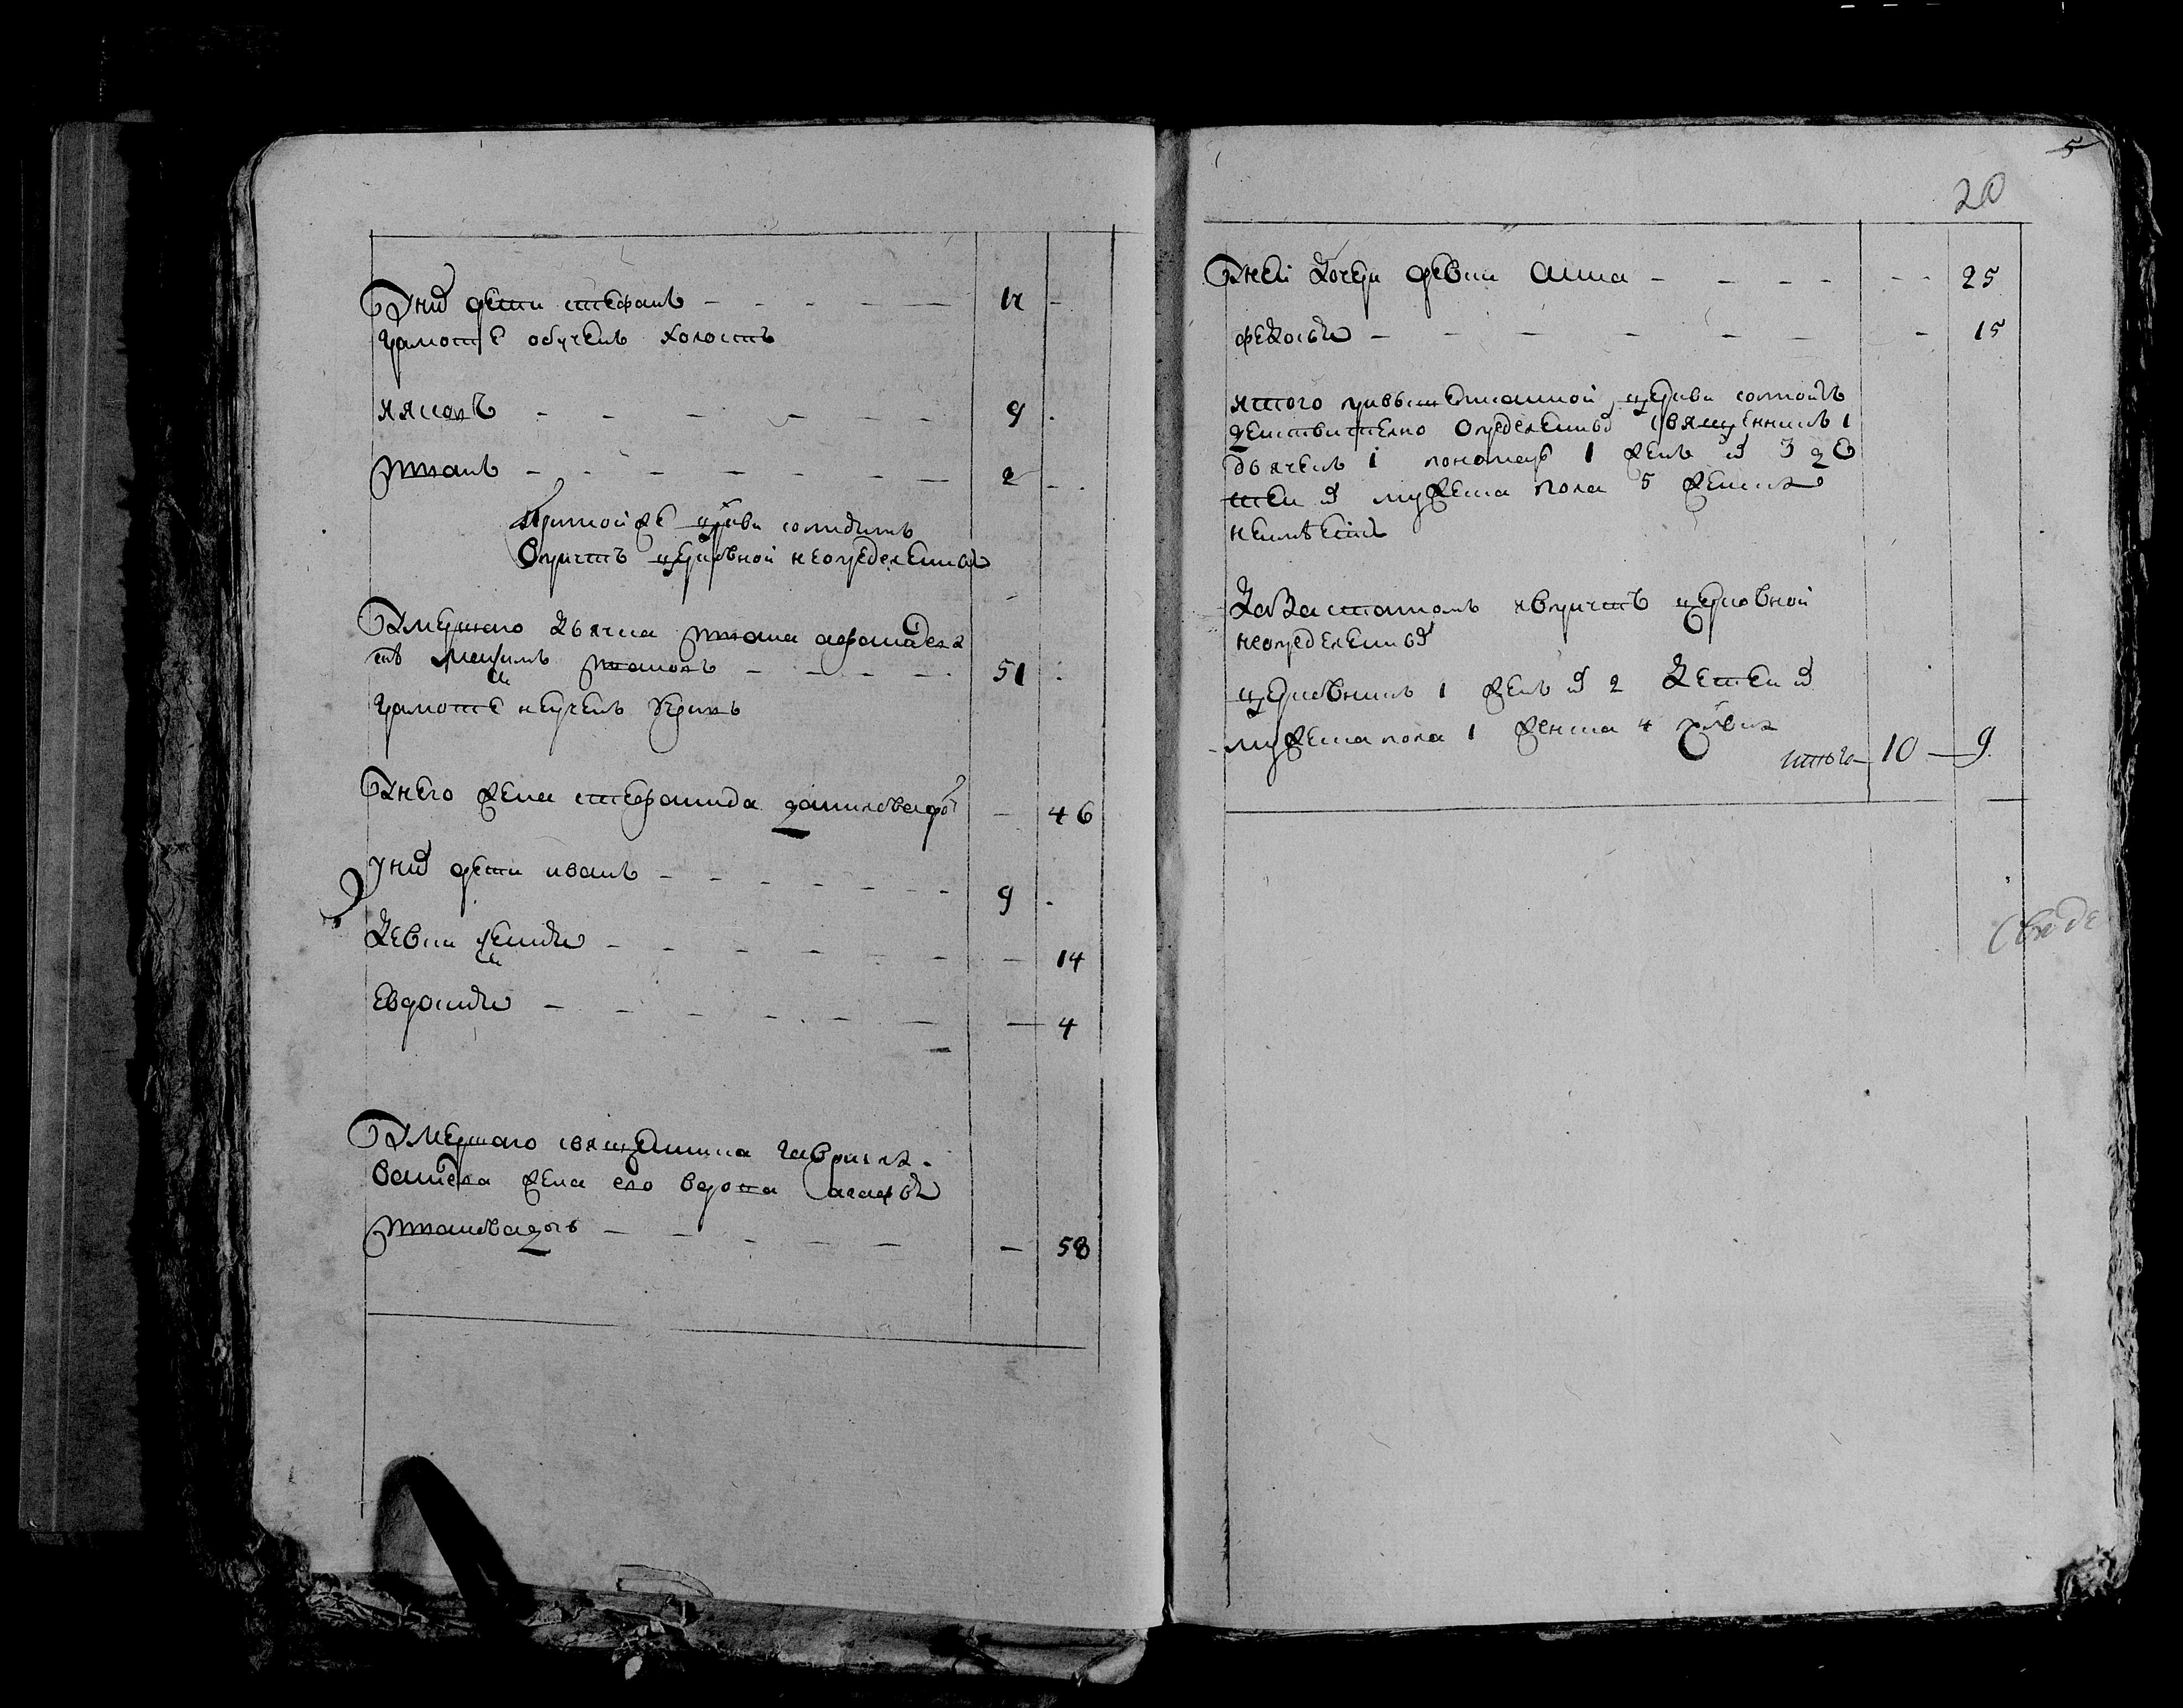 У них дети Стефанъ — 12 —
грамоте обученъ холостъ
— 9 -
Иванъ — 2 -
При той же цркви
в причтъ церковной неопределенныхъ
Умершаго дьячка Ивана
сынъ Максимъ Ивановъ — 51
грамоте неученъ
У него жена Стефанида Данилова дочь — 46
у них дети Иванъ — 9 -
девки — 14
Евдокия — 4
Умершаго священника Гаврила
жена его вдова Агафья
Иванова дочь — 58
5
20
У ней дочери девки Анна — 25
Федосья — 15
итого при вышеписанной церкви состоитъ
действително определенных священникъ 1
дьячекъ 1 пономарь 1 жен их 3 де
теи их мужеска пола 5 женска
неимеется
За за штатом в причтъ церковной
неопределенных
церковникъ 1 жен их 2 детей их
мужеска пола 1 женска 4
итого 10 — 9